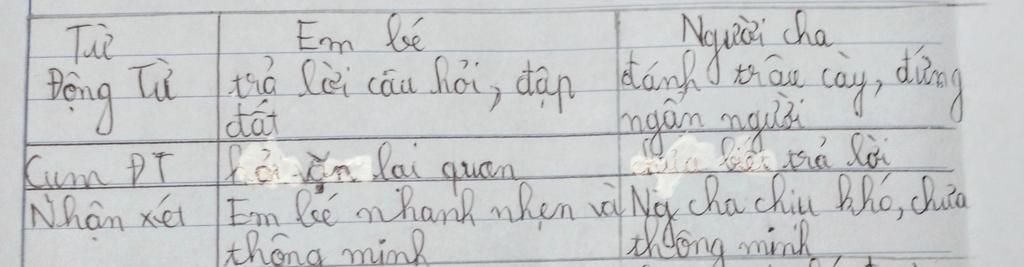 Từ Em bé Người cha
Động Từ trả lời câu hỏi, đập đánh trâu cày, đứng
đất ngẩn người
Cụm ĐT hỏi vặn lại quan trả lời
Nhận xét Em bé nhanh nhẹn và Ng cha chịu khó, chưa
thông minh thông minh